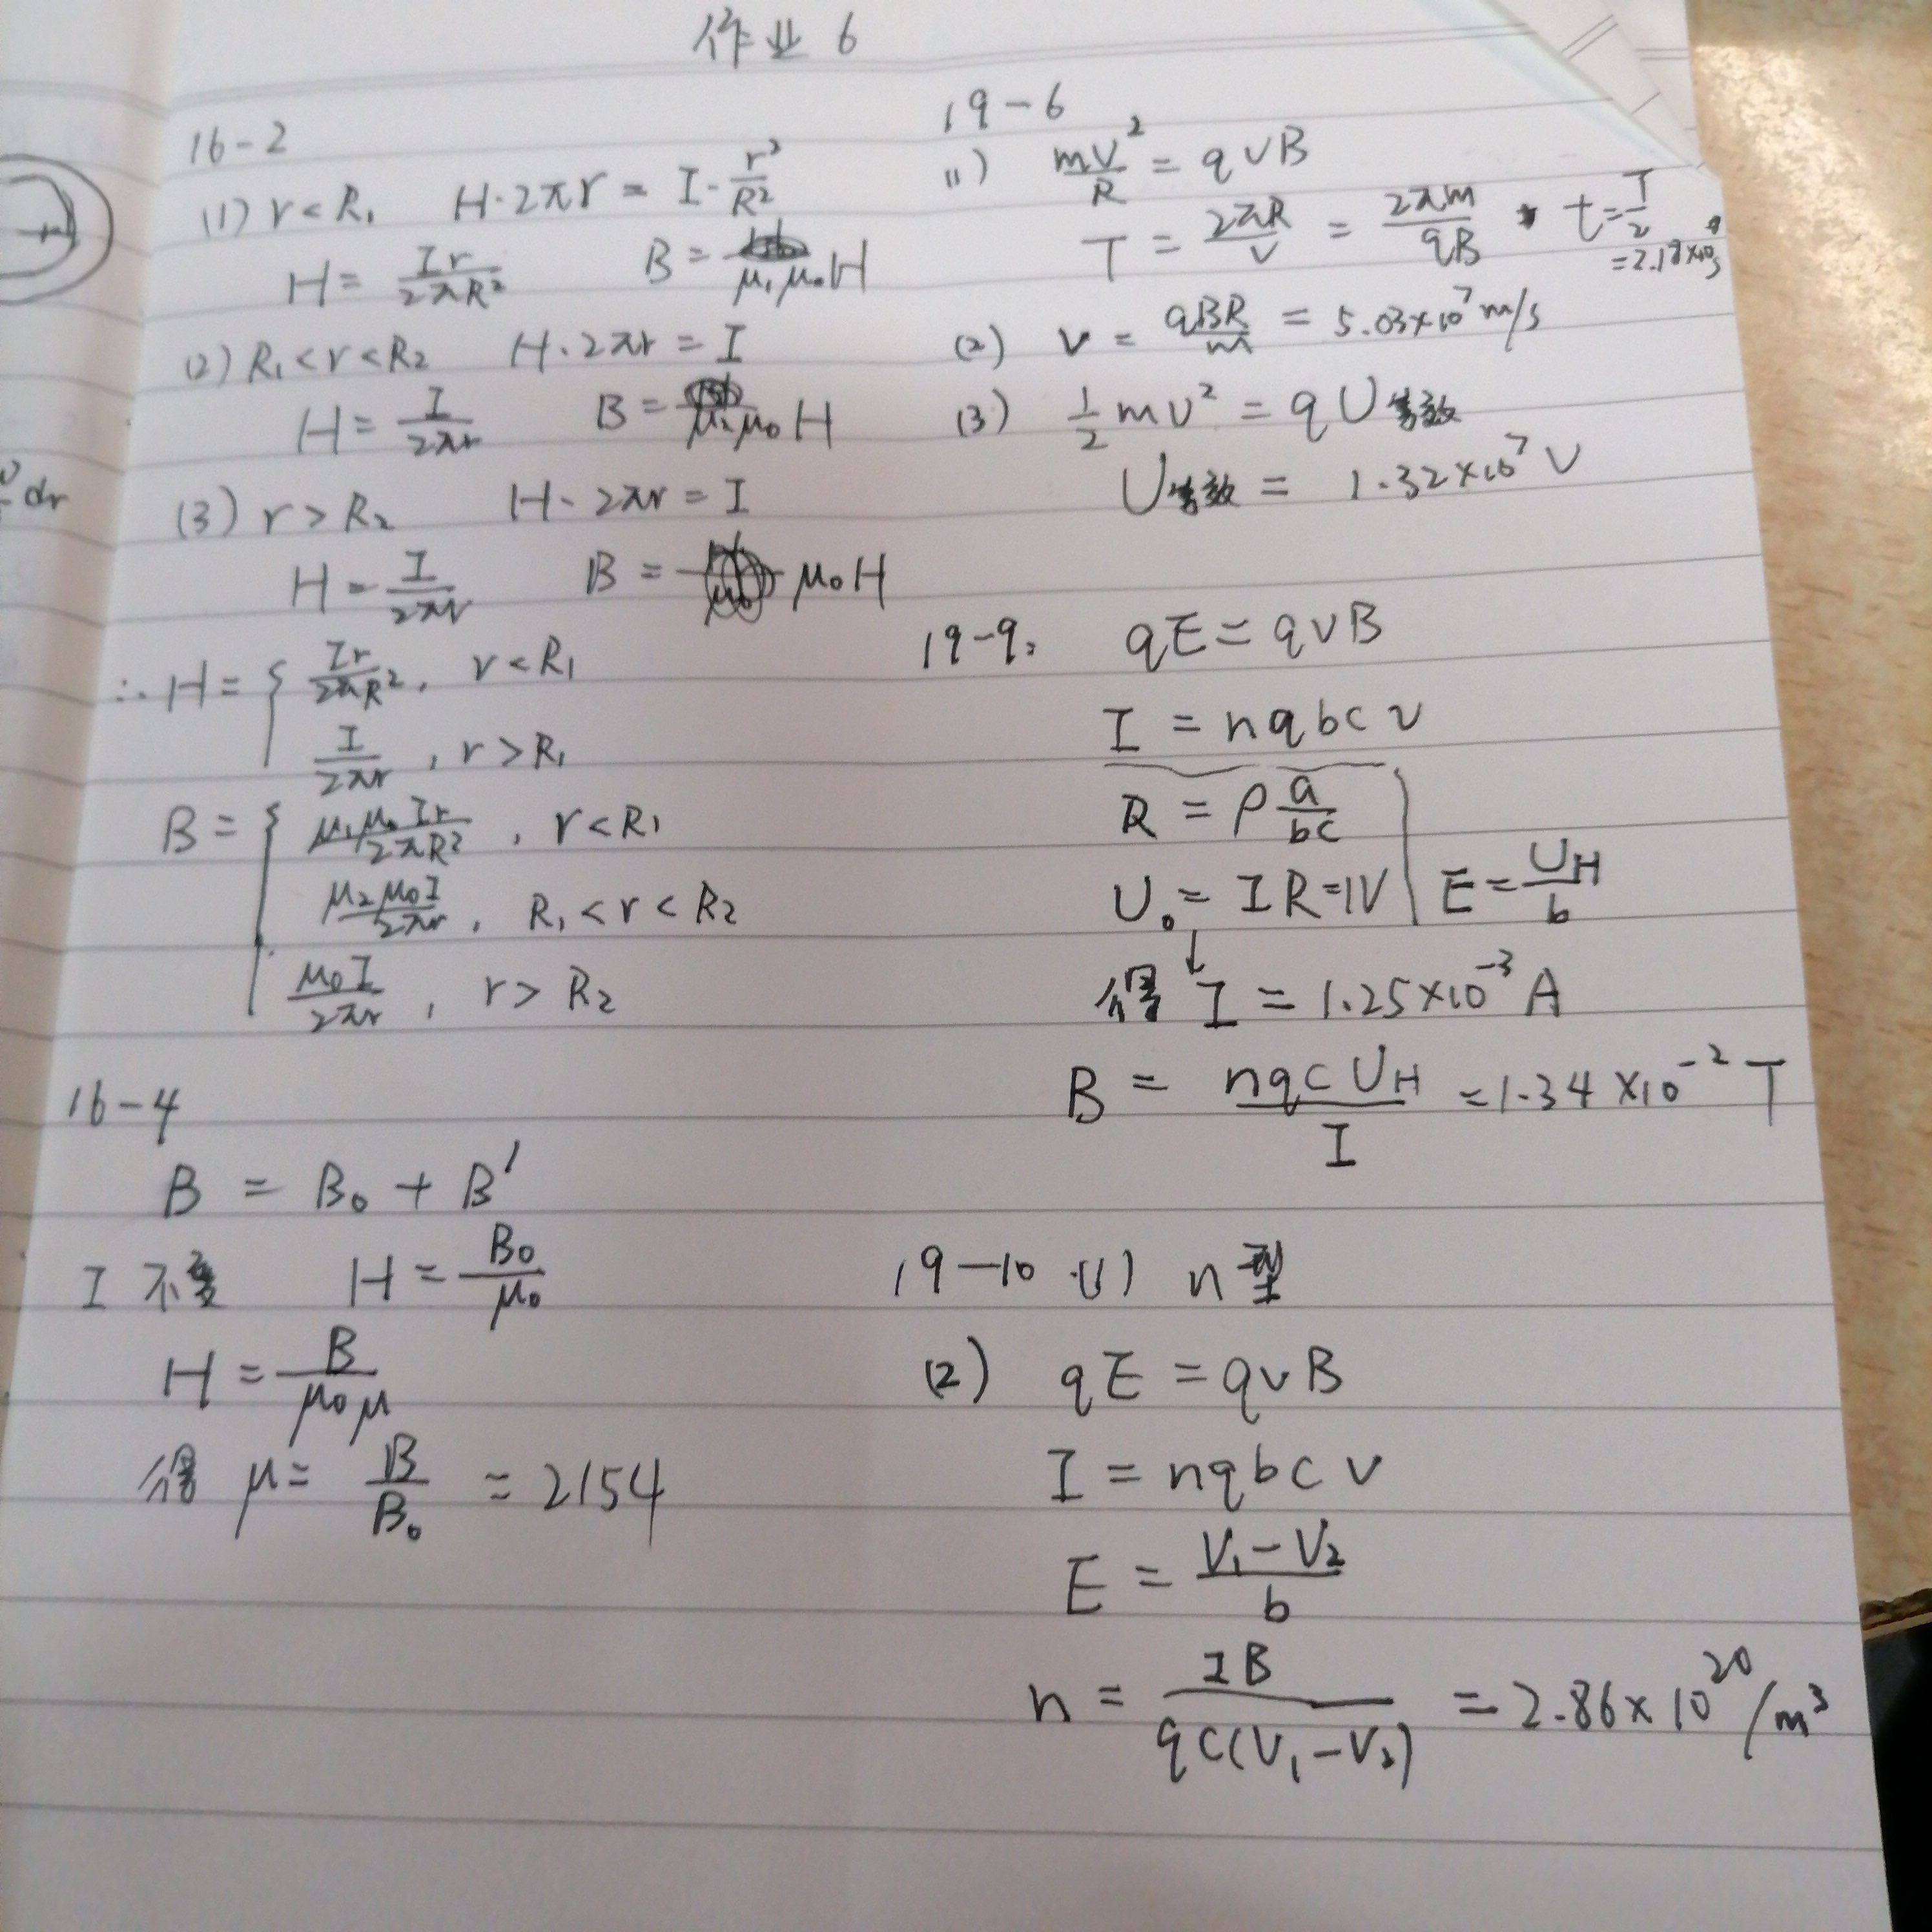 作业 6
16-2
(1) r < R₁   H·2πr = I·r²/R²
H = Ir/2πR²   B = μ₁μ₀H
(2) R₁ < r < R₂   H·2πr = I
H = I/2πr   B = μ₂μ₀H
(3) r > R₂   H·2πr = I
H = I/2πr   B = μ₀H
∴ H = { Ir/2πR², r < R₁
I/2πr, r > R₁
B = { μ₁μ₀Ir/2πR², r < R₁
μ₂μ₀I/2πr, R₁ < r < R₂
μ₀I/2πr, r > R₂
16-4
B = B₀ + B'
I 不变   H = B₀/μ₀
H = B/μ₀μ
得 μ = B/B₀ = 2154
19-6
(1) mv²/R = qvB
T = 2πR/v = 2πm/qB   t = T/2
(2) v = qBR/m = 5.03×10⁷ m/s
(3) ½mv² = qU等效
U等效 = 1.32×10⁷ V
19-9:   qE = qvB
I = nqbcv
R = ρ a/bc
U₀ = IR = 1V   E = U_H/b
得 I = 1.25×10⁻³ A
B = nqcU_H/I = 1.34×10⁻² T
19-10 (1) n型
(2) qE = qvB
I = nqbcv
E = (V₁-V₂)/b
n = IB/qc(V₁-V₂) = 2.86×10²⁰/m³
dr